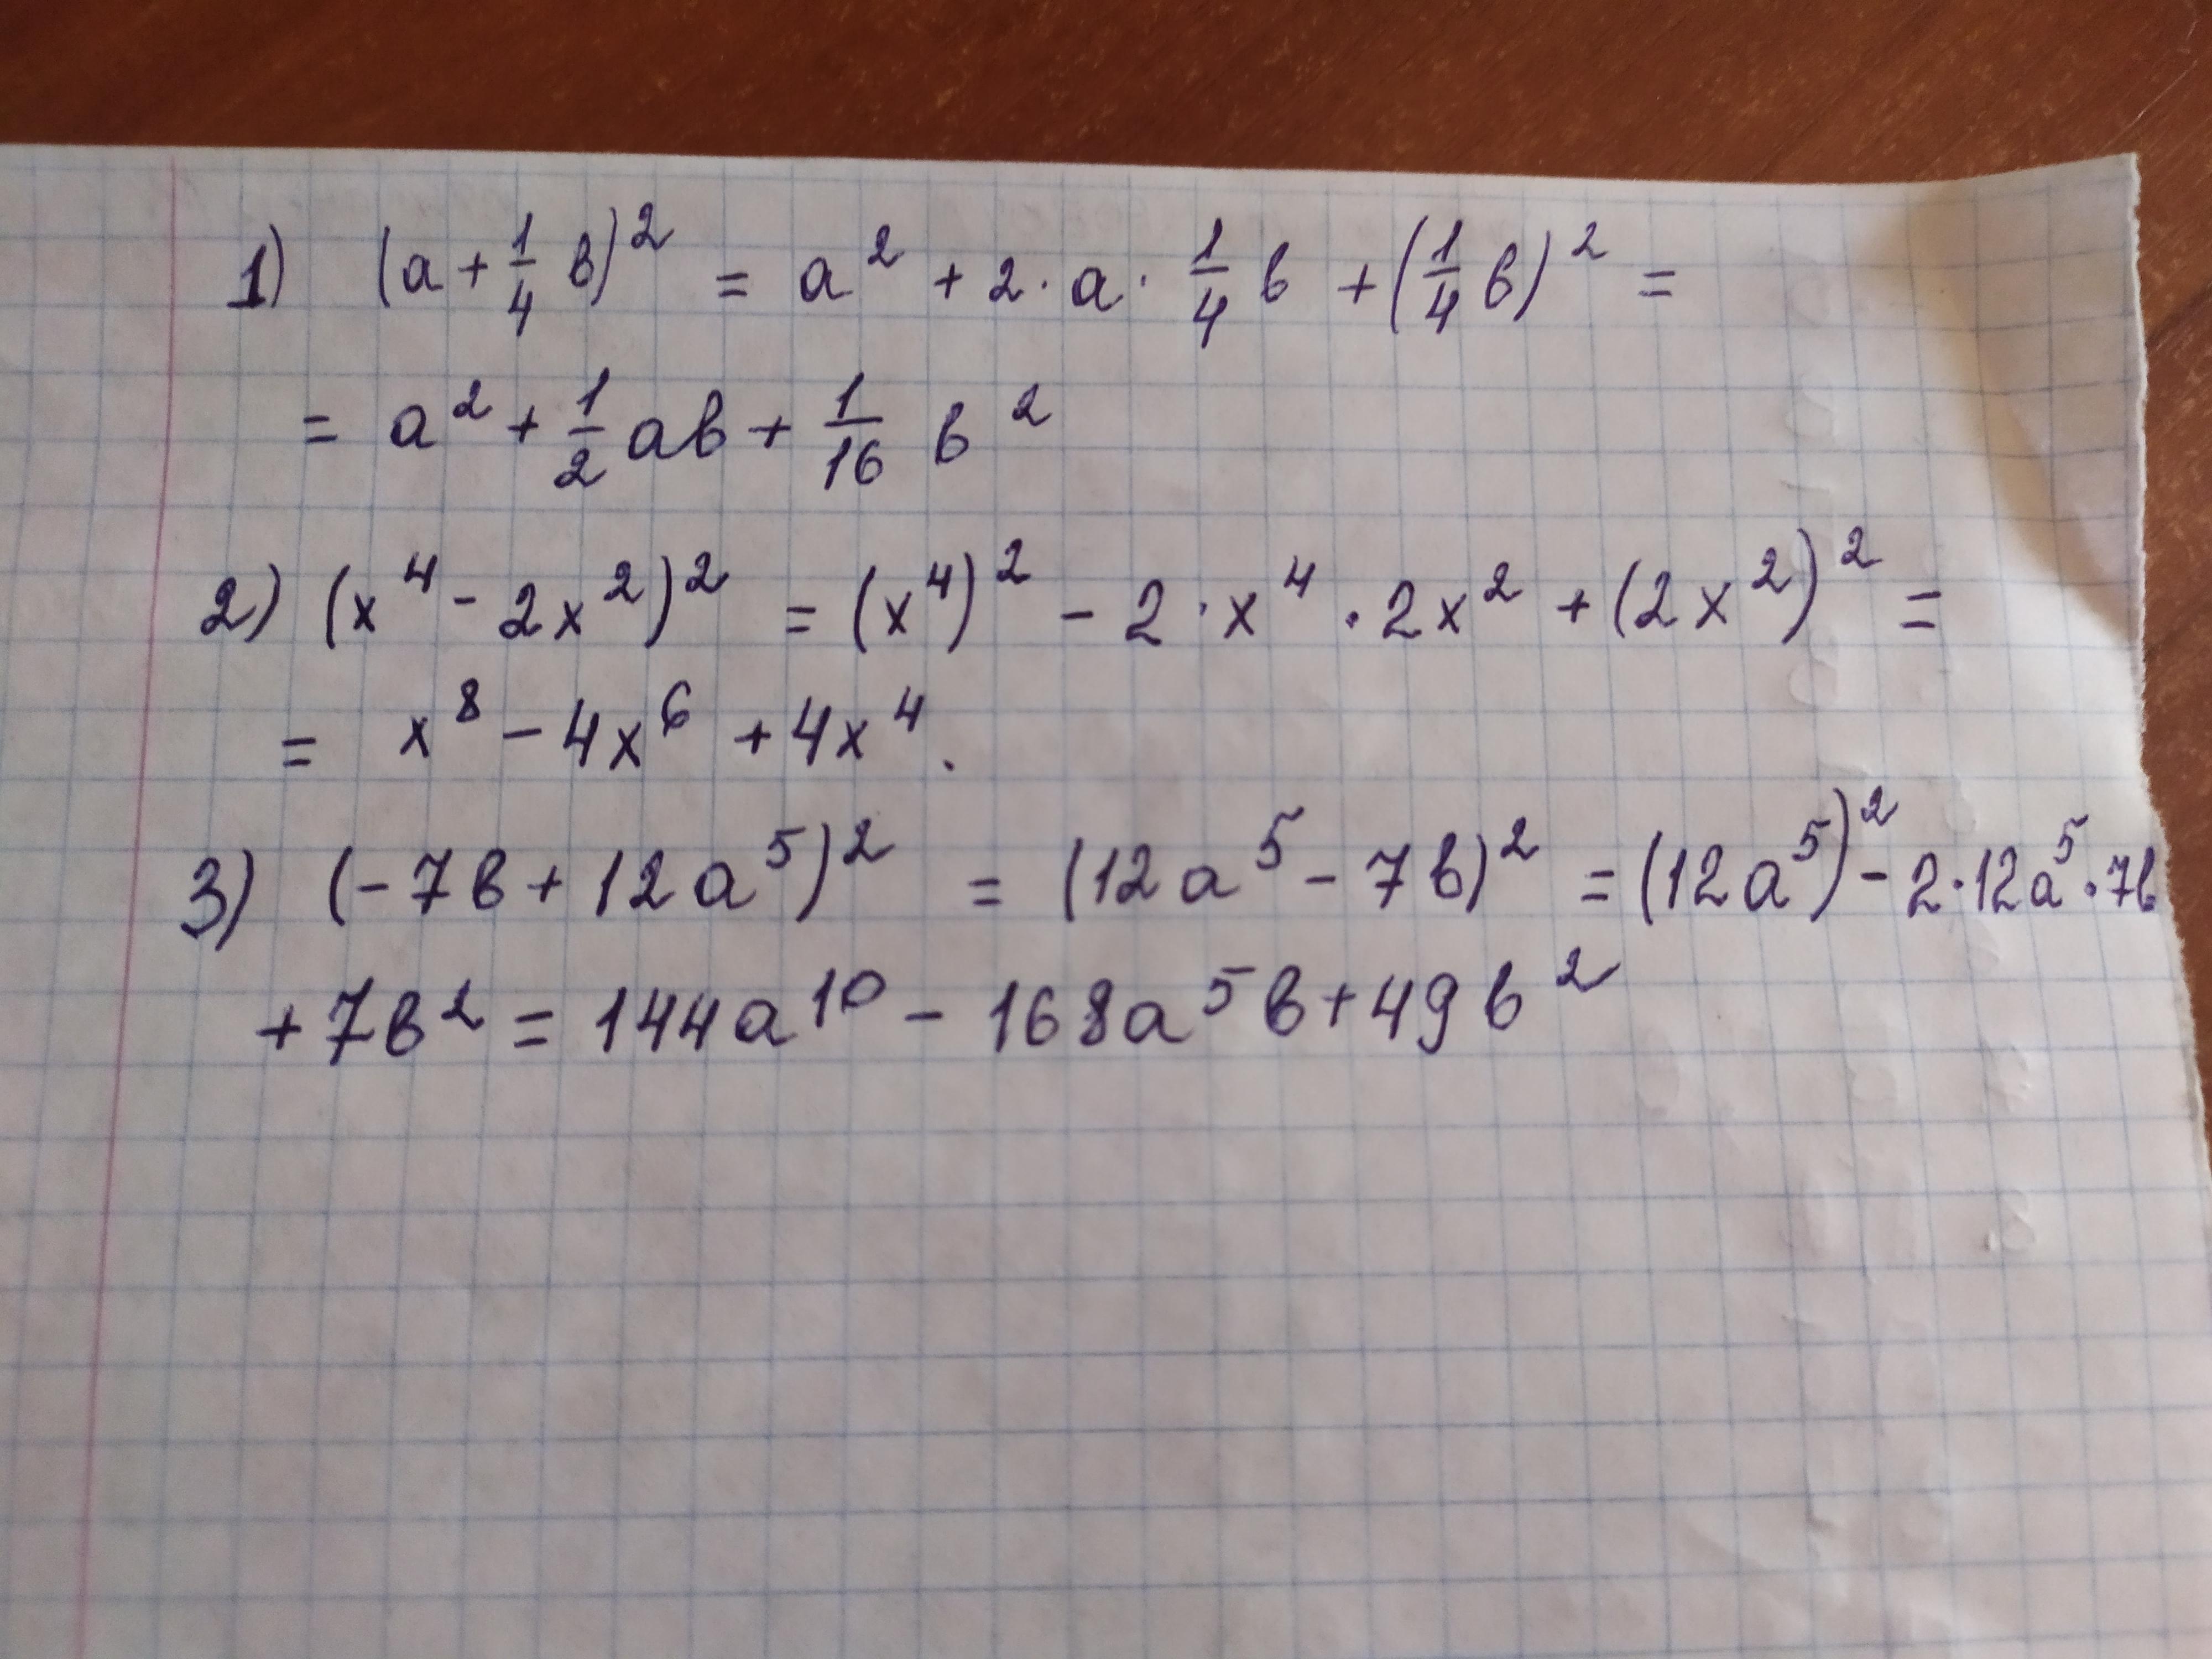 1) (a + 1/4 b)² = a² + 2 · a · 1/4 b + (1/4 b)² =
= a² + 1/2 ab + 1/16 b²
2) (x⁴ - 2x²)² = (x⁴)² - 2 · x⁴ · 2x² + (2x²)² =
= x⁸ - 4x⁶ + 4x⁴.
3) (-7b + 12a⁵)² = (12a⁵ - 7b)² = (12a⁵)² - 2 · 12a⁵ · 7b
+ 7b² = 144a¹⁰ - 168a⁵b + 49b²